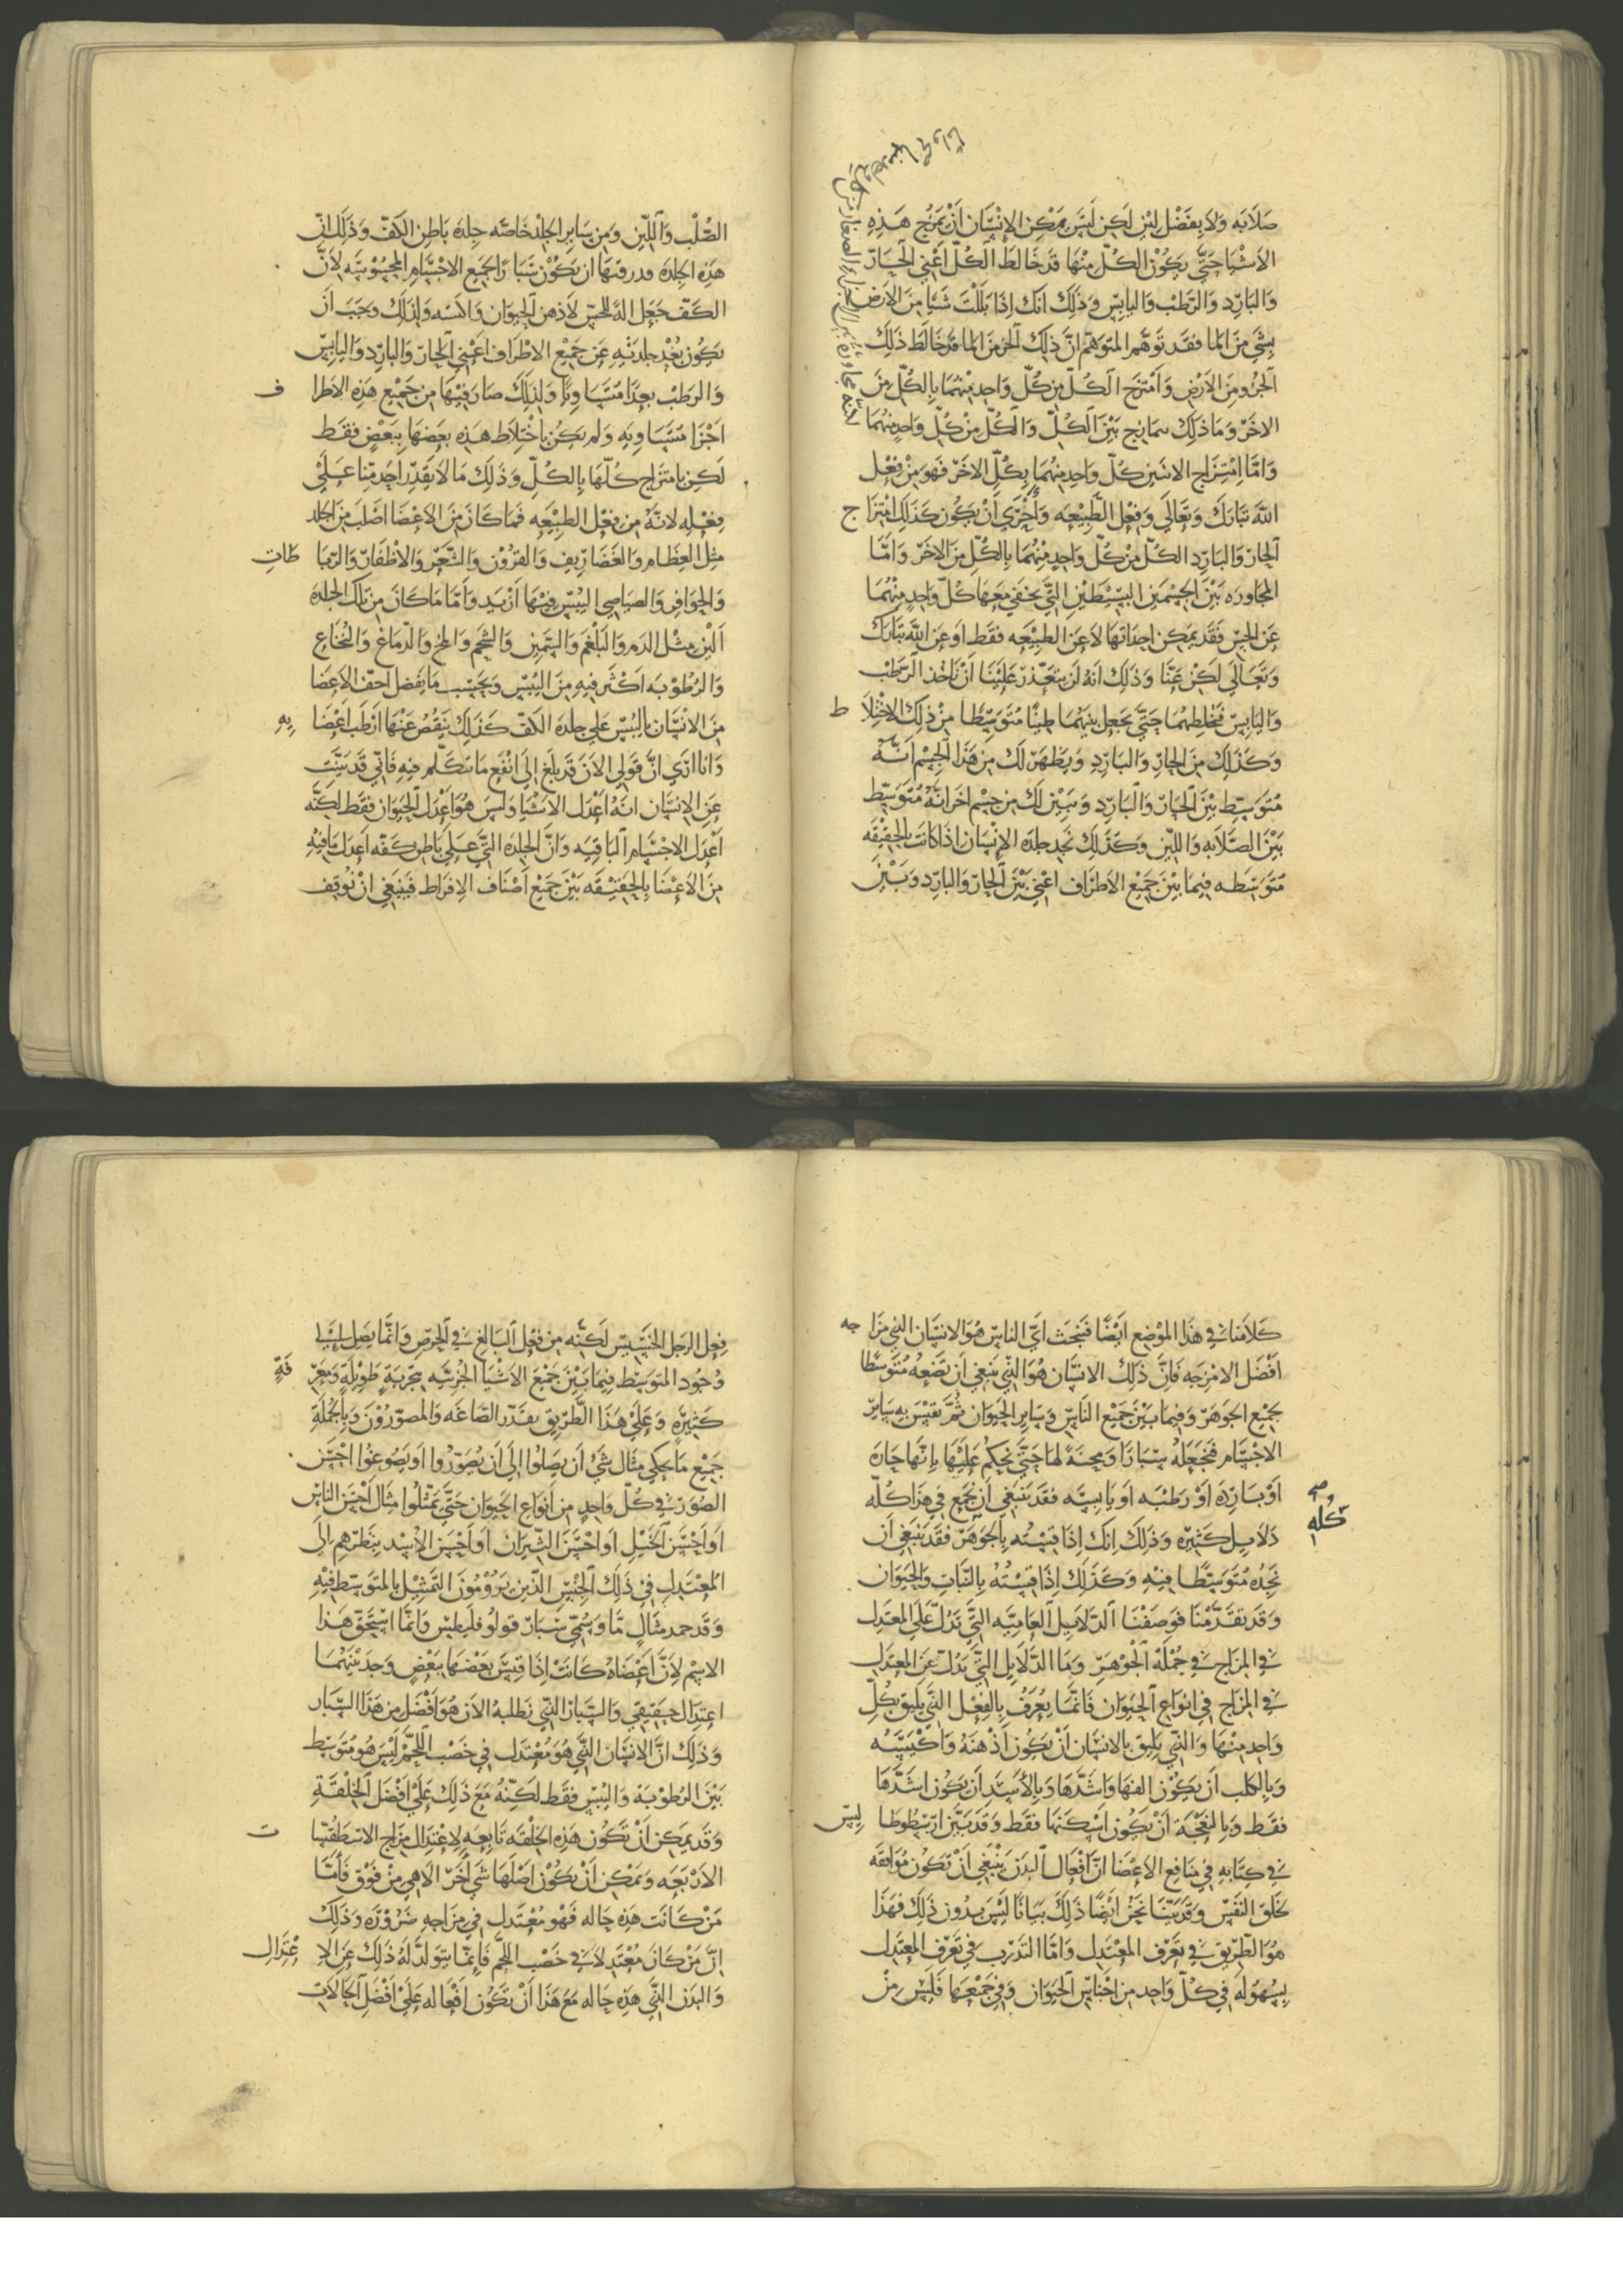 صلابه ولا بفضل لين لكن ليس يمكن الإنسان أن يمزج هذه
الاشيا حتى يكون الكل منها قد خالط الكل أعني الحار
والبارد والرطب واليابس وذلك انك إذا بللت شيا من الارض
بشي من الما فقد توهم المتوهم ان ذلك الجز من الما قد خالط ذلك
الجز من الارض وامتزج الكل من كل واحد منهما بالكل من
الاخر وما ذلك تمازج بين الكل والكل من كل واحد منهما
واما امتزاج الاثنين كل واحد منهما بكل الاخر فهو من فعل
الله تبارك وتعالى وفعل الطبيعه وأحرى أن يكون كذلك امتزاج
الحار والبارد الكل من كل واحد منهما بالكل من الاخر واما
المجاوره بين الجسمين البسيطين التي يخفى معها كل واحد منهما
عن الحس فقد يمكن احداثها لا عن الطبيعه فقط أو عن الله تبارك
وتعالى لكن عنا وذلك انه لن يتعذر علينا أن ناخذ الرطب
واليابس فنخلطهما حتى نجعل بينهما طينا متوسطا من ذلك الاختلاط
وكذلك من الحار والبارد ويظهر لك من هذا الجسم أنه
متوسط بين الحار والبارد ويبين لك من جسم اخر انه متوسط
بين الصلابه واللين وكذلك نجد جلده الإنسان اذا كانت بالحقيقه
متوسطه فيما بين جميع الاطراف اعني بين الحار والبارد وبين
الصلب واللين ومن ساير الجلد خاصه جلده باطن الكف وذلك ان
هذه الجلده قدر قسها ان يكون سبارا لجميع الاجسام المحسوسه لأن
الكف جعل اله للحس لاذهن الحيوان واكسه ولذلك وجب أن
يكون بعد جلدته عن جميع الاطراف اعني الحار والبارد واليابس
والرطب بعدا متساويا ولذلك صار فيها من جميع هذه الاطراف
اجزا متساويه ولم يكن باختلاط هذه بعضها ببعض فقط
لكن بامتزاج كلها بالكل وذلك ما لا يقدر احد منا على
فعله لانه من فعل الطبيعه فما كان من الاعضا اصلب من الجلد
مثل العظام والغضاريف والقرون والشعر والأظفار والرباطات
والحوافر والصياصي اليبس فيها ازيد واما ما كان من تلك الجلده
ألين مثل الدم والبلغم والسمين والشحم والمخ والدماغ والنخاع
والرطوبه اكثر فيه من اليبس وبحسب ما يفضل اجف الاعضا
من الانسان باليبس على جلده الكف كذلك ينقص عنها أرطب اعضايه
وانا ارى ان قولي الآن قد بلغ الى انفع ما نتكلم فيه فاني قد بينت
عن الإنسان انه أعدل الاشيا وليس هو اعدل الحيوان فقط لكنه
اعدل الاجسام الباقيه وان الجلده التي على باطن كفه اعدل ما فيه
من الاعضا بالحقيقه بين جميع أصناف الإفراط فينبغي ان نوقف
كلامنا في هذا الموضع ايضا فنبحث أي الناس هو الانسان الذي مزاجه
افضل الامزجه فان ذلك الانسان هو الذي ينبغي أن نضعه متوسطا
بجميع الجوهر وفيما بين جميع الناس وساير الحيوان ثم نقيس به ساير
الاجسام فنجعله سبارا ومحنة لها حتى نحكم عليها بانها حاره
أو بارده أو رطبه أو يابسه فقد ينبغي أن نجمع في هذا كله
كله
دلايل كثيره وذلك انك إذا قسته بالجوهر فقد ينبغي أن
نجده متوسطا فيه وكذلك إذا قسته بالنبات والحيوان
وقد تقدمنا فوصفنا الدلايل العاميه التي تدل على المعتدل
في المزاج في جملة الجوهر وما الدلايل التي تدل عن المعتدل
في المزاج في انواع الحيوان فانما يعرف بالفعل الذي يليق بكل
واحد منها والذي يليق بالانسان أن يكون أذهنه واكيسه
وبالكلب أن يكون الفها واشدها وبالأسد أن يكون اشدها
فقط وبالنعجه أن يكون اسكنها فقط وقد بين ارسطوطاليس
في كتابه في منافع الاعضا ان افعال البدن ينبغي أن تكون موافقه
لخلق النفس وقد بينا نحن ايضا ذلك بيانا ليس بدون ذلك فهذا
هو الطريق في تعرف المعتدل واما التدرب في تعرف المعتدل
بسهوله في كل واحد من اجناس الحيوان وفي جميعها فليس من
فعل الرجل الخسيس لكنه من فعل البالغ في الحرص وانما يصل الى
وجود المتوسط فيما بين جميع الاشيا الجزئيه بتجربة طويلة ومعرفة
كثيرة وعلى هذا الطريق يقتدر الصاغه والمصورون وبالجملة
جميع ما يحكي مثال شي أن يصلوا الى أن يصوروا أو يصوغوا احسن
الصور في كل واحد من أنواع الحيوان حتى يمثلوا مثال أحسن الناس
أو أحسن الخيل أو احسن الثيران أو أحسن الأسد بنظرهم الى
المعتدل في ذلك الجنس الذين يرومون التمثيل بالمتوسط فيه
وقد حمد مثال ما وسمي سبار قولوقليطس وانما استحق هذا
الاسم لأن أعضاه كانت إذا قيس بعضها ببعض وجد بينهما
اعتدال حقيقي والسبار الذي نطلبه الآن هو أفضل من هذا السبار
وذلك ان الانسان الذي هو معتدل في خصب اللحم ليس هو متوسط
بين الرطوبة واليبس فقط لكنه مع ذلك على أفضل الخلقة
وقد يمكن أن تكون هذه الخلقه تابعه لاعتدال مزاج الاسطقسات
الأربعه ويمكن أن يكون اصلها شي آخر الاهي من فوق فأما
من كانت هذه حاله فهو معتدل في مزاجه ضرورة وذلك
ان من كان معتدلا في خصب اللحم فإنما يتولد له ذلك عن الاعتدال
والبدن الذي هذه حاله مع هذا أن تكون افعاله على افضل الحالات